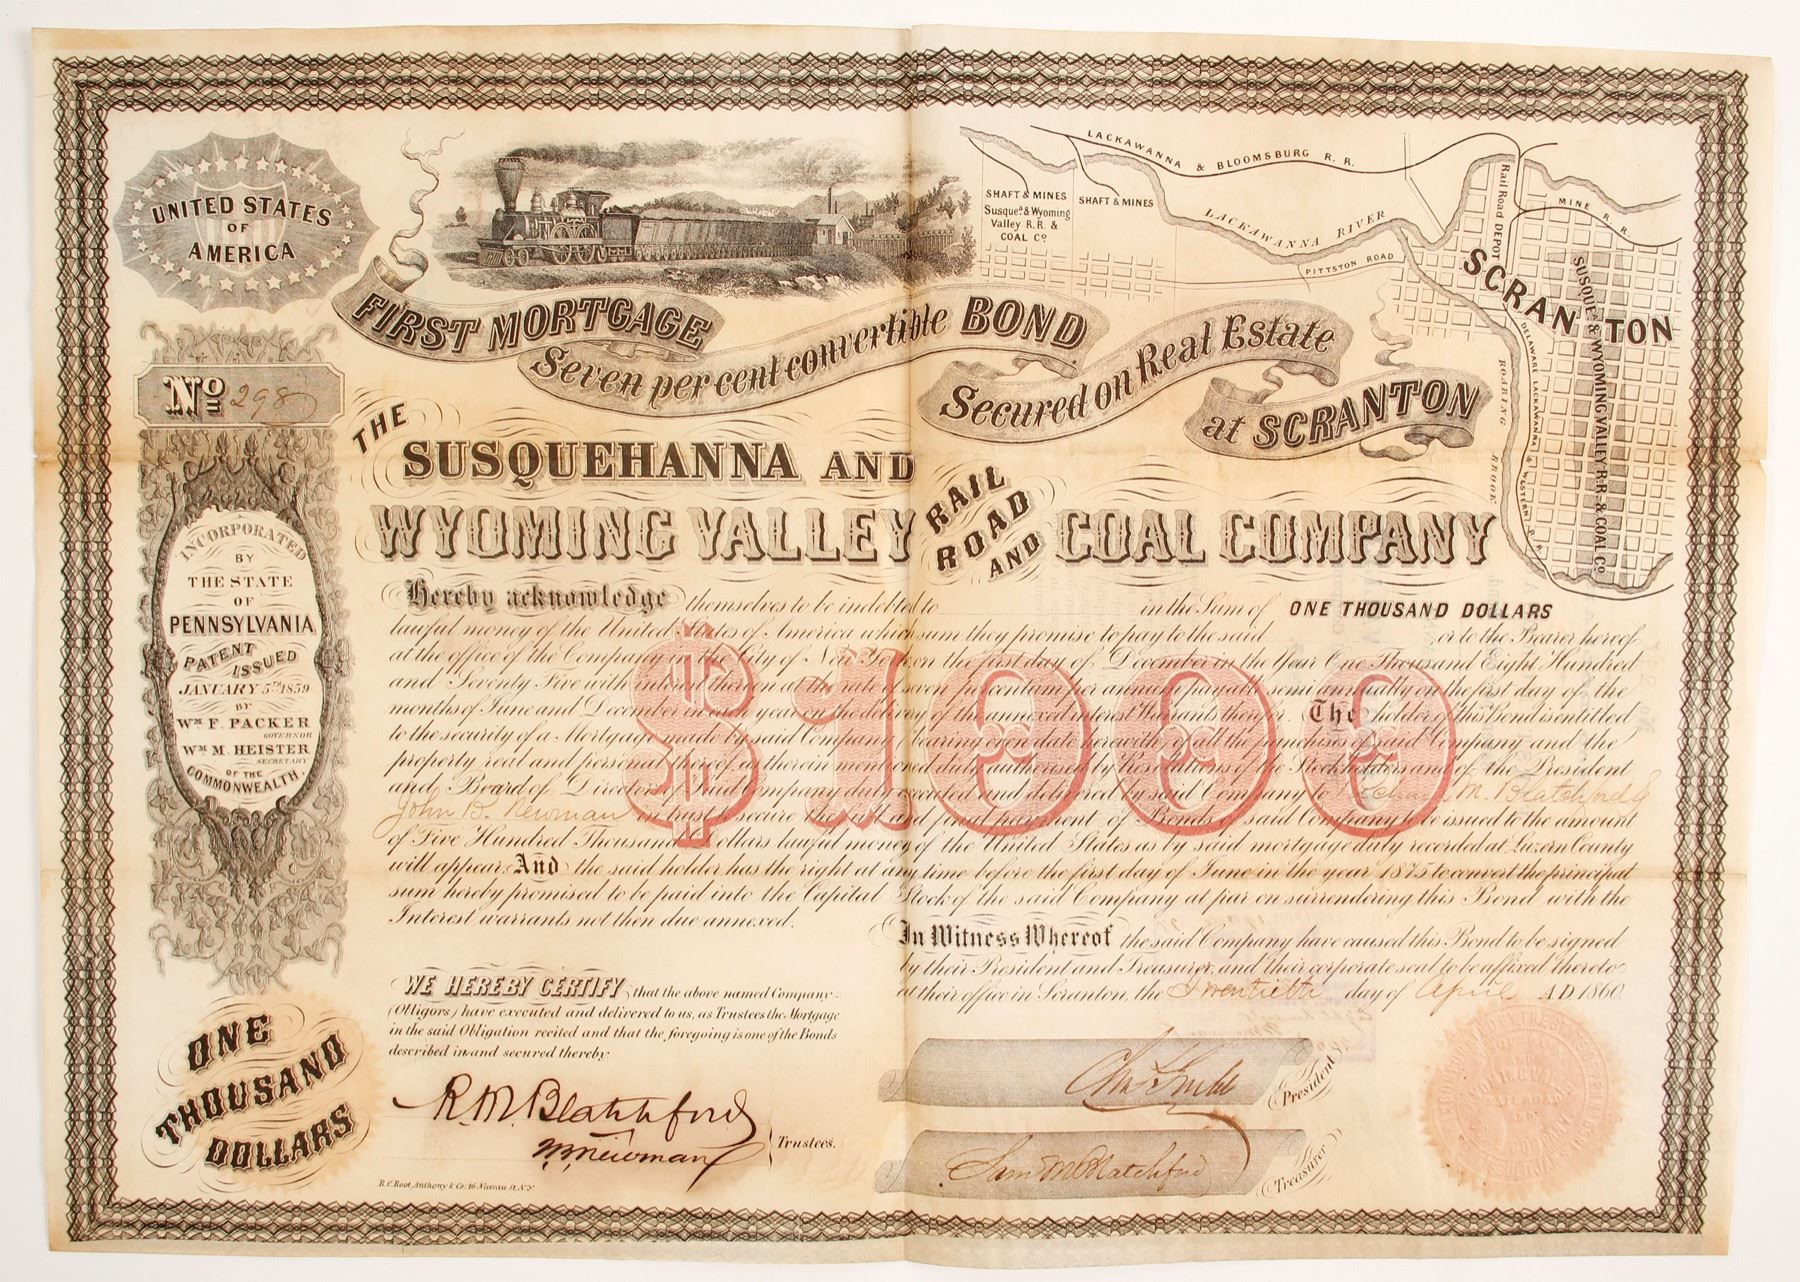 UNITED STATES
OF
AMERICA
SHAFT & MINES
Susqueª & Wyoming
Valley R.R. &
COAL Cº
SHAFT & MINES
LACKAWANNA & BLOOMSBURG R. R.
LACKAWANNA RIVER
PITTSTON ROAD
Rail Road DEPOT
MINE R.
SCRANTON
SUSQUE & WYOMING VALLEY R.R. & COAL Cº
DELAWARE LACKAWANNA & WESTERN R.R.
ROARING BROOK
FIRST MORTGAGE
Seven per cent convertible BOND
Secured on Real Estate
at SCRANTON
Nº 298
THE
SUSQUEHANNA AND
WYOMING VALLEY RAIL ROAD AND COAL COMPANY
INCORPORATED
BY
THE STATE
OF
PENNSYLVANIA
PATENT
ISSUED
JANUARY 5TH 1859
BY
WM F. PACKER
GOVERNOR
WM M. HEISTER
SECRETARY
OF THE
COMMONWEALTH.
$1000
Hereby acknowledge themselves to be indebted to in the Sum of ONE THOUSAND DOLLARS
lawful money of the United States of America which sum they promise to pay to the said or to the Bearer hereof
at the office of the Company in the City of New York on the first day of December in the Year One Thousand Eight Hundred
and Seventy Five with interest thereon at the rate of seven per centum per annum payable semi annually on the first day of the
months of June and December in each year on the delivery of the annexed interest Warrants therefor. The holder of this Bond is entitled
to the security of a Mortgage made by said Company bearing even date herewith of all the franchises of said Company and the
property real and personal thereof as therein mentioned duly authorised by Resolutions of the Stockholders and of the President
and Board of Directors of said Company duly executed and delivered by said Company to Richard M. Blatchford &
John B. Newman in trust to secure the and payment of Bonds of said Company to be issued to the amount
of Five Hundred Thousand Dollars lawful money of the United States as by said mortgage duly recorded at Luzern County
will appear. And the said holder has the right at any time before the first day of June in the year 1875 to convert the principal
sum hereby promised to be paid into the Capital Stock of the said Company at par on surrendering this Bond with the
Interest warrants not then due annexed.
In Witness Whereof the said Company have caused this Bond to be signed
by their President and Treasurer, and their corporate seal to be affixed thereto
at their office in Scranton, the Twentieth day of April AD 1860.
WE HEREBY CERTIFY that the above named Company
(Obligors) have executed and delivered to us, as Trustees the Mortgage
in the said Obligation recited and that the foregoing is one of the Bonds
described in and secured thereby.
R. M. Blatchford
Newman
Trustees.
President
Sam M Blatchford
Treasurer
ONE
THOUSAND
DOLLARS
R.C. Root, Anthony & Co. 16 Nassau St. N.Y.